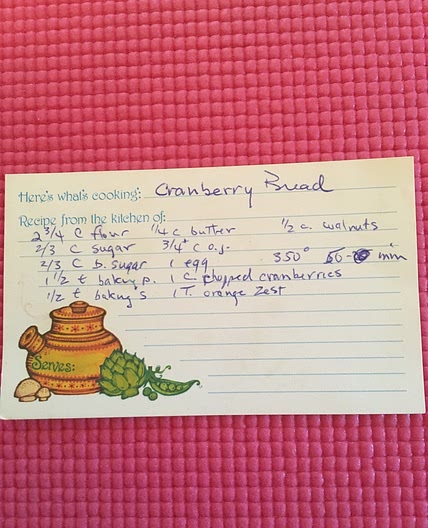 Here's what's cooking: Cranberry Bread
Recipe from the kitchen of:
2 3/4 C flour 1/4 c butter 1/2 c. walnuts
2/3 C sugar 3/4+ c o.j.
2/3 C b. sugar 1 egg 350° min
1 1/2 t baking p. 1 c. chopped cranberries
1/2 t baking s 1 T. orange zest
Serves: